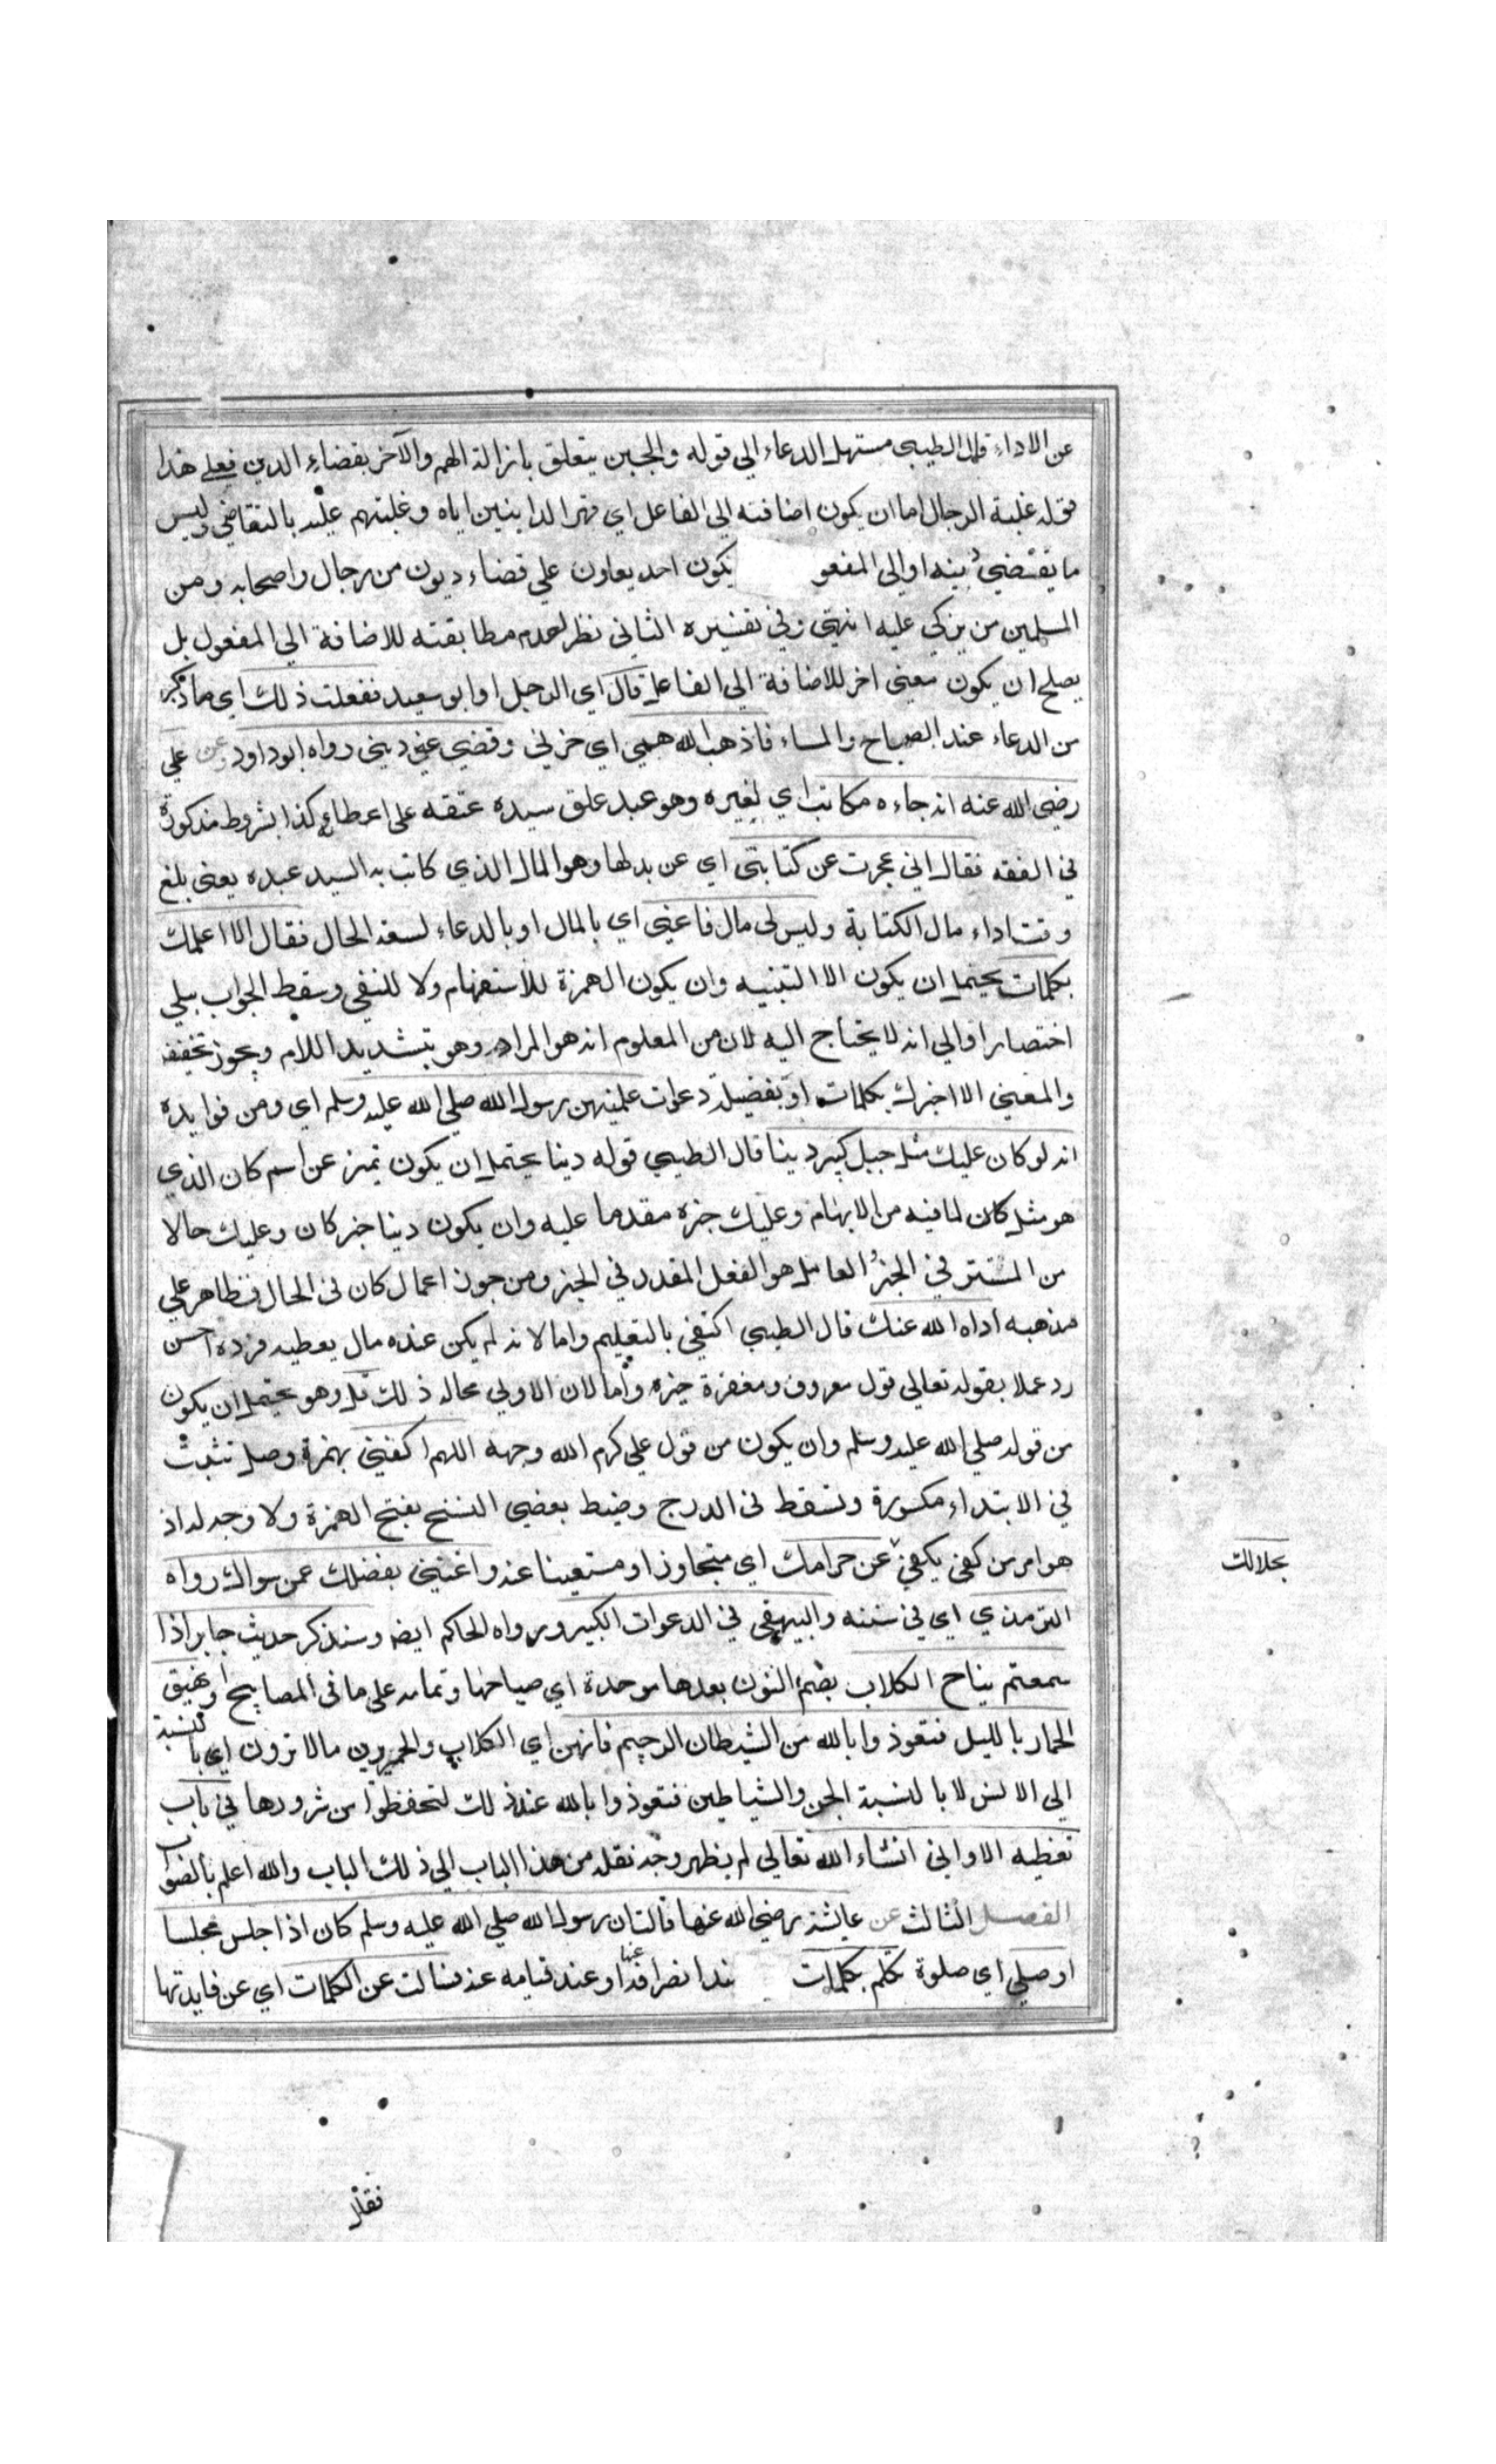 عن الاداء قال الطيبي مستهل الدعاء الي قوله والجبن يتعلق بازالة الهم والآخر بقضاء الدين فعلي هذا
قوله غلبة الرجال اما ان يكون اضافته الي الفاعل اي قهر الداينين اياه وغلبتهم عليه بالتقاضي وليس
ما يقتضي دينه او الي المفعو يكون احد يعاون علي قضاء ديون من رجال واصحابه ومن
المسلمين من يزكي عليه انتهي وفي تفسيره الثاني نظر لعدم مطابقته للاضافة الي المفعول بل
يصلح ان يكون معني اخر للاضافة الي الفاعل قال اي الرجل او ابو سعيد ففعلت ذلك اي ما ذكر
من الدعاء عند الصباح والمساء فاذهب الله همي اي حزني وقضي عني ديني رواه ابو داود وعن علي
رضي الله عنه انه جاءه مكاتب اي لغيره وهو عبد علق سيده عتقه علي اعطاء كذا بشروط مذكورة
في الفقه فقال اني عجزت عن كتابتي اي عن بدلها وهو المال الذي كاتب به السيد عبده يعني بلغ
وقت اداء مال الكتابة وليس لي مال فاعني اي بالمال او بالدعاء لسعة الحال فقال الا اعلمك
بكلمات يحتمل ان يكون الا التنبيه وان يكون الهمزة للاستفهام ولا للنفي وسقط الجواب ببلي
اختصارا والي انه لا يحتاج اليه لان من المعلوم انه هو المراد وهو بتشديد اللام ويجوز تخفيفه
والمعني الا اخبرك بكلمات او بفضيلة دعوات علمنيهن رسول الله صلي الله عليه وسلم اي ومن فوايده
انه لو كان عليك مثل جبل كبير دينا قال الطيبي قوله دينا يحتمل ان يكون تميز عن اسم كان الذي
هو مثل كان لما فيه من الابهام وعليك خبره مقدما عليه وان يكون دينا خبر كان وعليك حالا
من المستتر في الخبر العامل هو الفعل المقدر في الخبر ومن جوز اعمال كان في الحال فظاهر علي
مذهبه اداه الله عنك قال الطيبي اكتفي بالتعليم واما لانه لم يكن عنده مال يعطيه فرده احسن
رد عملا بقوله تعالي قول معروف ومغفرة خير واما لان الاولي بحاله ذلك قل وهو يحتمل ان يكون
من قوله صلي الله عليه وسلم وان يكون من قول علي كرم الله وجهه اللهم اكفني بهمزة وصل تثبت
في الابتداء مكسورة وتسقط في الدرج وضبط بعضي النسخ بفتح الهمزة ولا وجه له اذ
هو امر من كفي يكفي عن حرامك اي متجاوزا ومستغنيا عنه واغنني بفضلك عمن سواك رواه
بحلالك
الترمذي اي في سننه والبيهقي في الدعوات الكبير ورواه الحاكم ايضه وسنذكر حديث جابر اذا
سمعتم نباح الكلاب بضم النون بعدها موحدة اي صياحها وتمامه علي ما في المصابيح او نهيق
الحمار بالليل فتعوذوا بالله من الشيطان الرجيم فانهن اي الكلاب والحمير يرين ما لا ترون اي بالنسبة
الي الانس لا بالنسبة الجن والشياطين فتعوذوا بالله عند ذلك لتحفظوا من شرورها في باب
تغطيه الاواني انشاء الله تعالي لم يظهر وجه نقله من هذا الباب الي ذلك الباب والله اعلم بالصواب
الفصل الثالث عن عايشة رضي الله عنها قالت ان رسول الله صلي الله عليه وسلم كان اذا جلس مجلسا
او صلي اي صلوة تكلم بكلمات ند انصرافه عنها او عند قيامه عنه فسالت عن الكلمات اي عن فايدتها
فقال